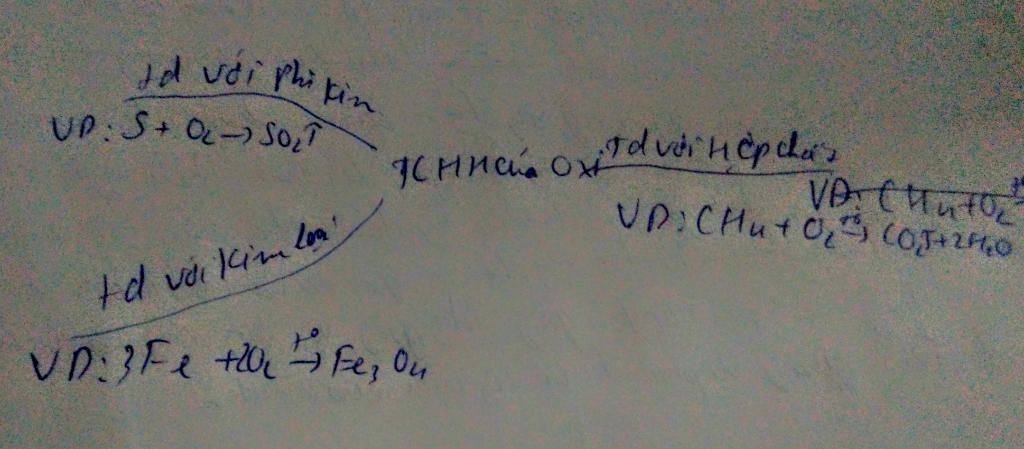 td với phi kim
VD: S + O2 → SO2↑
TCHH của Oxi
Td với Hợp chất
VD: CH4 + O2
VD: CH4 + O2 t° → CO2↑ + 2H2O
td với kim loại
VD: 3Fe + 2O2 t° → Fe3O4